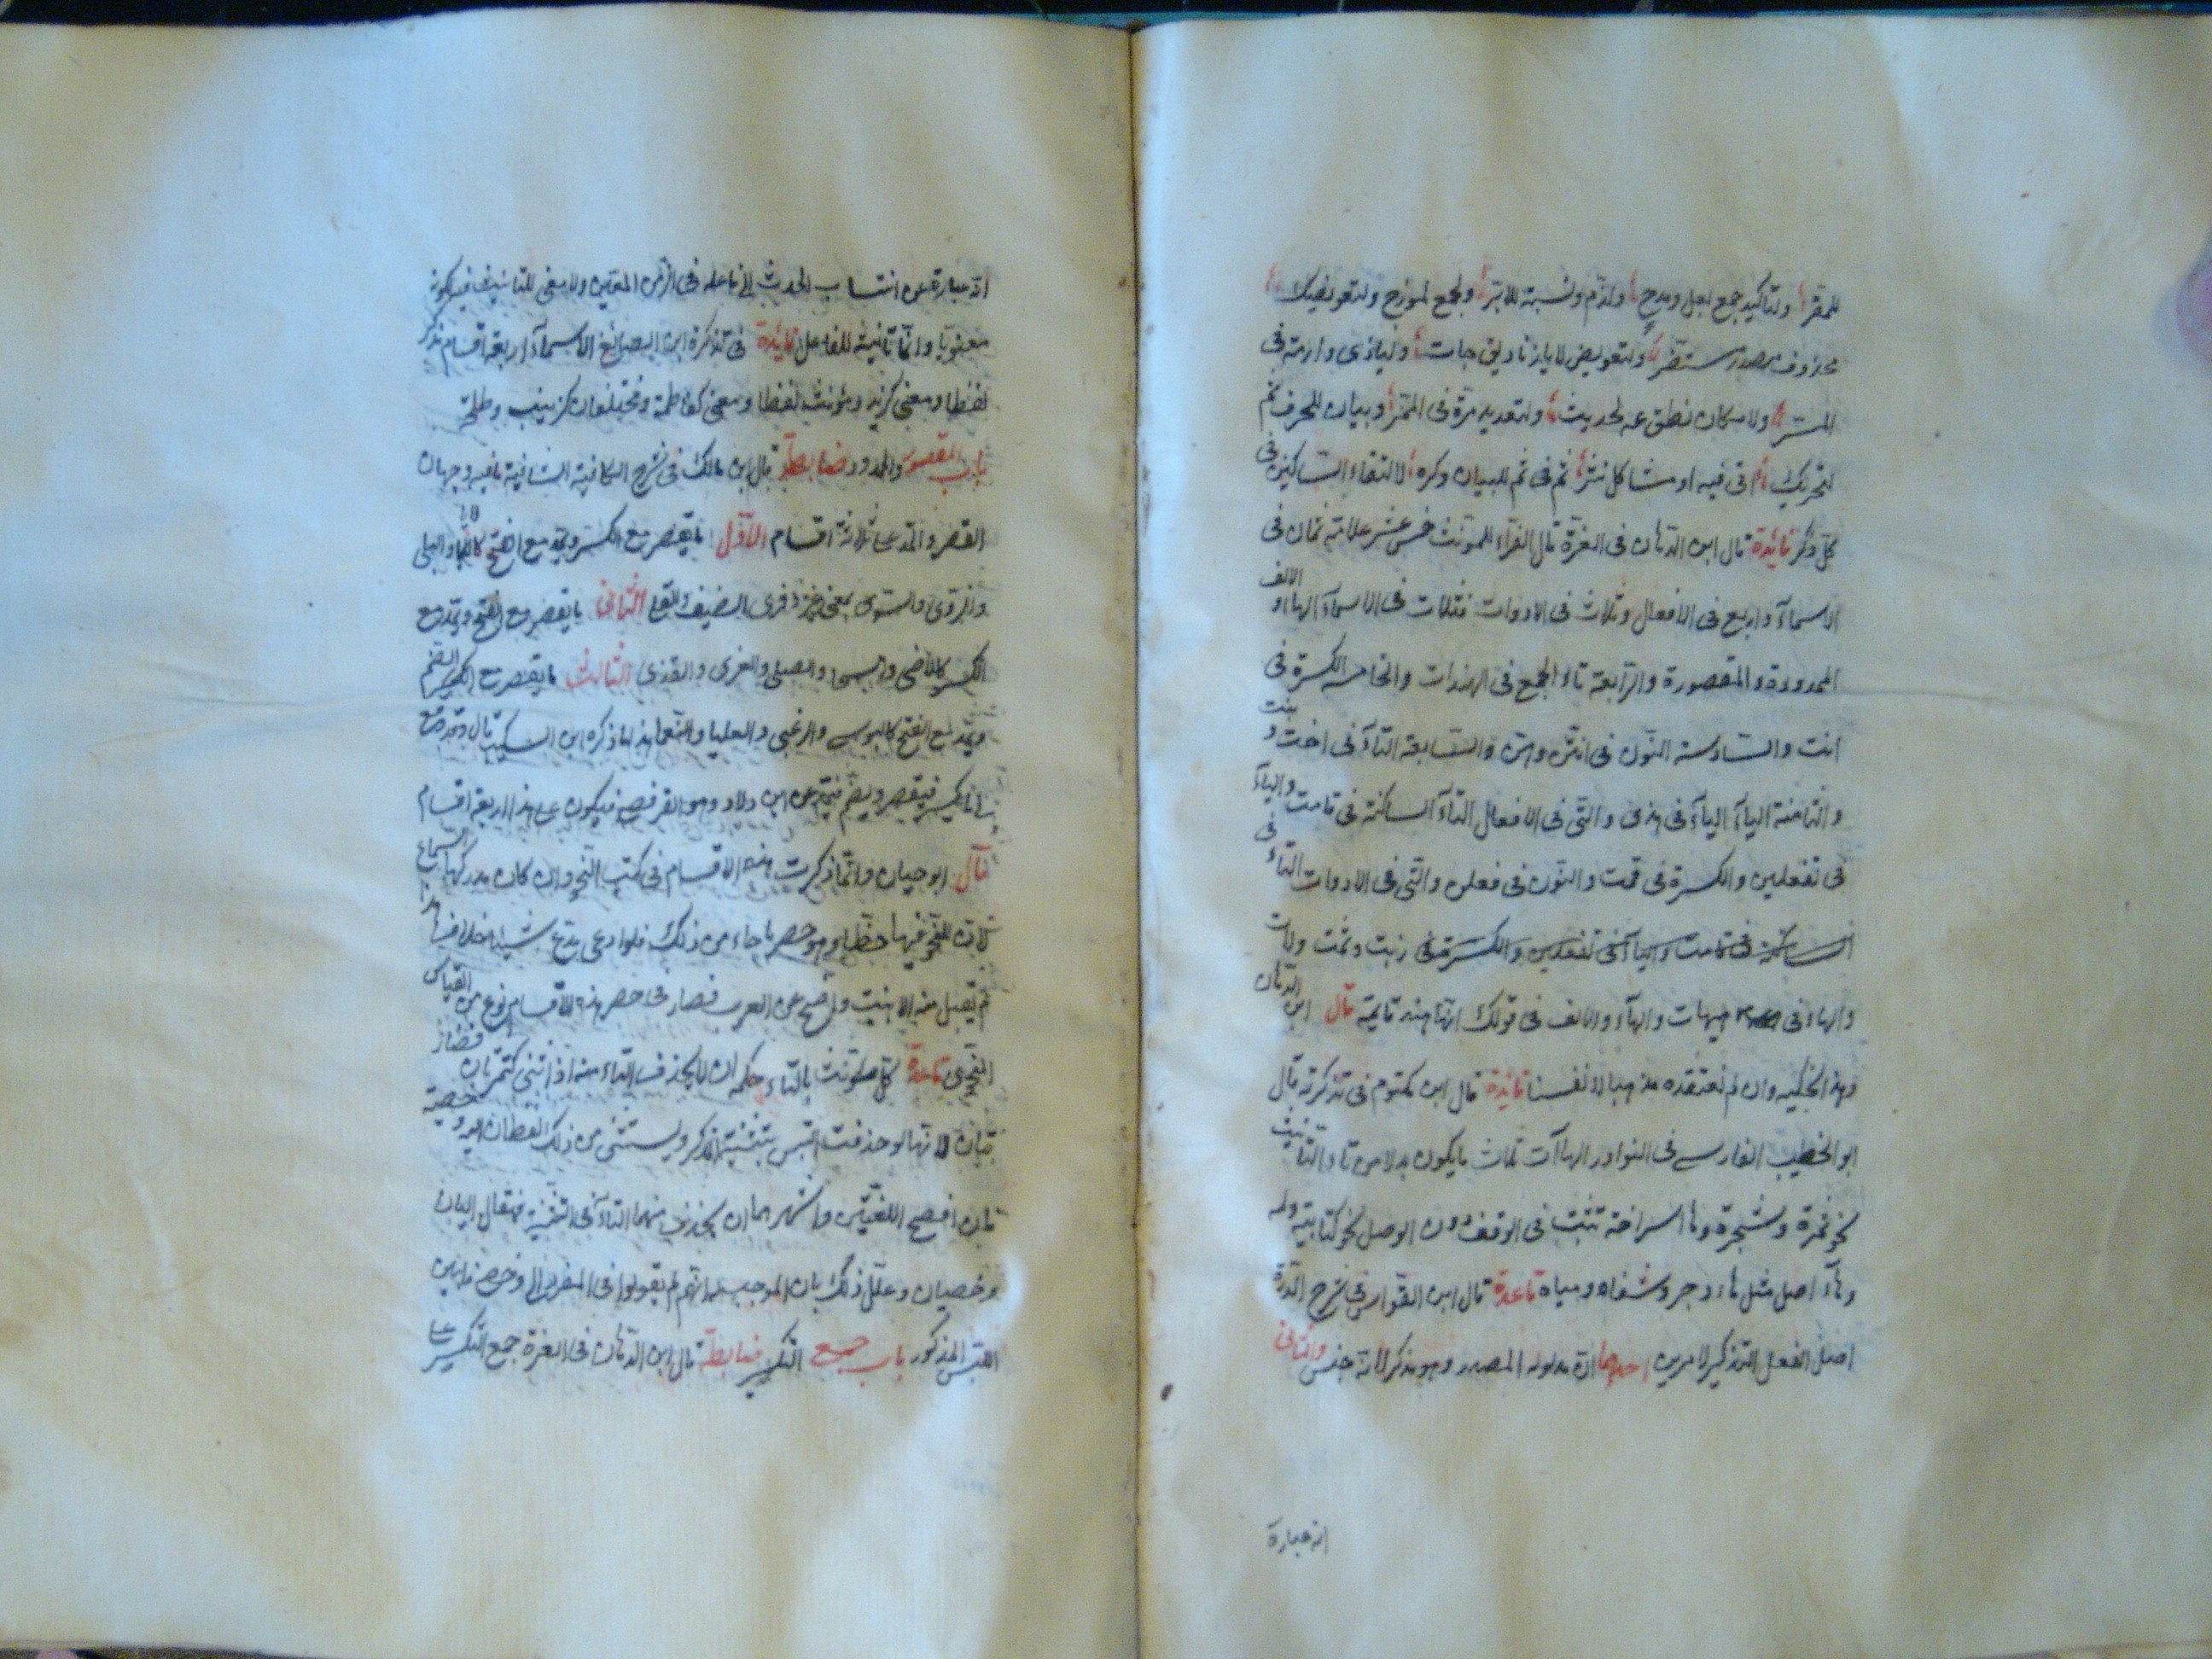 للمقر ولتأكيد جمع بعل ومدح ولذم ونسبة للابتر ولجمع لموزج ولتعويضك
محذوف مصدر ولتعويض لا يا زناديق جات وليا ذى وازمنة فى
ولامكان نطق عه لحديث ولتعديد مرة فى الممر وبيان للحرف ثم
لتحريك فى فيه او مشاكل نثر ثم فى ثم للبيان وكره لالتقاء الساكنين فى
كل ذكر فائدة قال ابن الدهان فى الغرة قال الفراء للمونث خمس عشر علامة ثمان فى
الاسمآء واربع فى الافعال وثلاث فى الادوات فثلاث فى الاسمآء الهاء والالف
الممدودة والمقصورة والرابعة تاء الجمع فى الهندات والخامسه الكسرة فى
انت والسادسة النون فى انتن وهن والسابعة التآء فى اخت و بنت
والثامنة اليآء فى هذى والتى فى الافعال التآء الساكنة فى قامت واليآء
فى تفعلين والكسرة فى قمت والنون فى فعلن والتى فى الادوات التاء فى
الساكنة فى قامت واليآء فى تفعلين والكسرة فى ربت وثمت ولات
والهاء فى هيهات والهآء والالف فى قولك انها هند قايمة قال ابن الدهان
وهذا الحكيه وان لم نعتقده مذهبا لانفسنا فائدة قال ابن مكتوم فى تذكرته قال
ابو الخطيب الفارسى فى النوادر الهاآت ثلاث ما يكون بدلا من تاء التأنيث
نحو ثمرة وشجرة وها استراحة تثبت فى الوقف دون الوصل نحو كتابيه وله
وهآء اصل مثل ماء وجر وشفاه ومياه قاعدة قال ابن القواس فى شرح الدرة
اصل الفعل التذكير لامرين احدهما ان مدلوله المصدر وهو مذكر لانه جنس والثانى
انه عبارة
انه عبارة عن انتساب الحدث الى فاعله فى الزمن المعين ولا معنى للتانيث فيه لكونه
معنويا وانما تانيثه للفاعل فائدة فى تذكرة ابن الصائغ الاسمآء اربعة اقسام مذكر
لفظا ومعنى كزيد ومؤنث لفظا ومعنى كفاطمة ومختلفان كزينب وطلحة
باب المقصور والممدود ضابطة قال ابن مالك فى شرح الكافية الشافية ما فيه وجهان
القصر والمد على ثلاثة اقسام الاول ما يقصر مع الكسر ويمد مع الفتح كالايا والبلى
والروى والسوى بمعنى غير وقرى الضيف والقلا الثانى ما يقصر مع الفتح ويمد مع
الكسر كالاضى والسحا والصلى والغرى والقذى الثالث ما يقصر مع الضم
ويمد مع الفتح كالبوسى والرغبى والعليا والنعما هذا ما ذكره ابن السكيت قال وقد
ما يكسر فيقصر ويضم فيمد عن ابن ولاد وهو القرفصى فيكون على هذا اربعة اقسام
قال ابو حيان وانما ذكرت هذه الاقسام فى كتب النحو وان كان مدركها السماع
لان للنحو فيها حظا وهو حصر ما جاء من ذلك فلو ادعى مدع شيئا خلاف هذا
لم يقبل منه الا بثبت واضح عن العرب فصار فى حصر هذه الاقسام نوع من القياس
النحوى قاعدة كل مونث بالتاء حكمه ان لا يحذف التاء منه اذا ثنى كتمرتان
لانها لو حذفت التبس بتثنية المذكر ويستثنى من ذلك لفظان الية وخصية
فان افصح اللغتين واشهرهما ان يحذف منهما التآء فى التثنية فيقال اليان
وخصيان وعلل ذلك بان الموجب له انهم لم يقولوا فى المفرد الى وخصى فامن
اللبس المذكور باب جمع التكسير ضابطة قال ابن الدهان فى الغرة جمع التكسير على